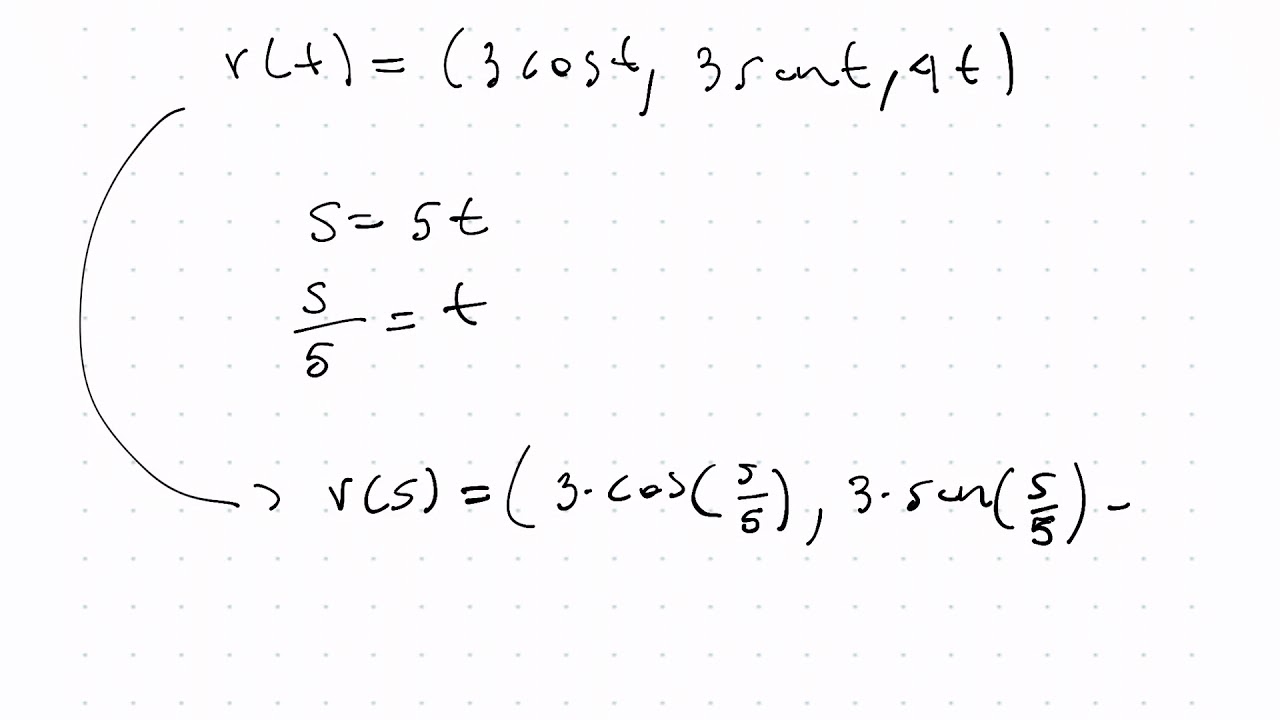 r(t) = (3 cos t, 3 sen t, 4t)
s = 5t
s/5 = t
→ r(s) = (3·cos(s/5), 3·sen(s/5) -